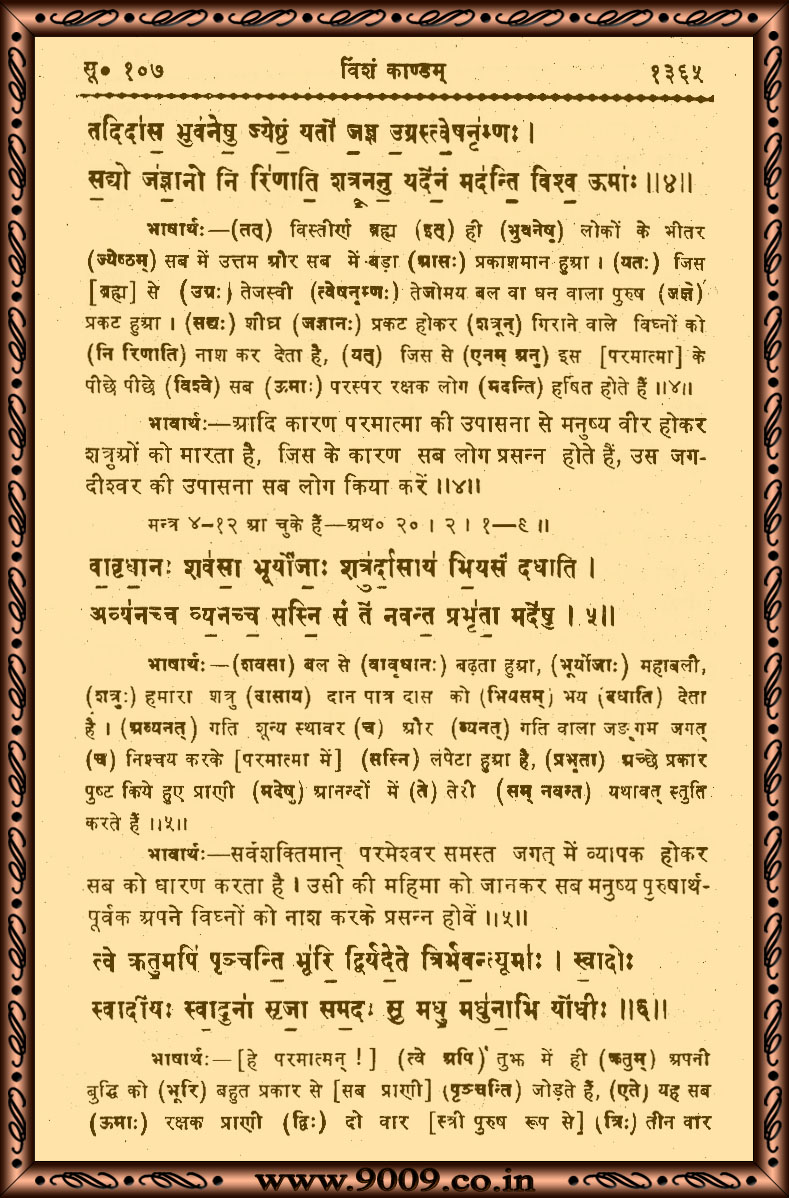 सू० १०७ विंशं काण्डम् १३६५
तदिदा॑स॒ भुव॑नेषु॒ ज्येष्ठं॒ यतो॑ ज॒ज्ञ उ॒ग्रस्त्वे॒षनृ॑म्णः ।
स॒द्यो ज॑ज्ञा॒नो नि रि॑णाति॒ शत्रू॒ननु॒ यदे॑नं॒ मद॑न्ति॒ विश्व॒ ऊमाः॑ ॥४॥
भाषार्थः—(तत्) विस्तीर्ण ब्रह्म (इत्) ही (भुवनेषु) लोकों के भीतर
(ज्येष्ठम्) सब में उत्तम और सब में बड़ा (आसः) प्रकाशमान हुआ । (यतः) जिस
[ब्रह्म] से (उग्रः) तेजस्वी (त्वेषनृम्णः) तेजोमय बल वा धन वाला पुरुष (जज्ञे)
प्रकट हुआ । (सद्यः) शीघ्र (जज्ञानः) प्रकट होकर (शत्रून्) गिराने वाले विघ्नों को
(नि रिणाति) नाश कर देता है, (यत्) जिस से (एनम् अनु) इस [परमात्मा] के
पीछे पीछे (विश्वे) सब (ऊमाः) परस्पर रक्षक लोग (मदन्ति) हर्षित होते हैं ॥४॥
भावार्थः—आदि कारण परमात्मा की उपासना से मनुष्य वीर होकर
शत्रुओं को मारता है, जिस के कारण सब लोग प्रसन्न होते हैं, उस जग-
दीश्वर की उपासना सब लोग किया करें ॥४॥
मन्त्र ४–१२ आ चुके हैं—अथ० २० । २ । १—९ ॥
वा॒वृ॒धा॒नः शव॑सा॒ भूर्यो॑जाः॒ शत्रु॑र्दा॒साय॑ भि॒यसं॑ दधाति ।
अव्य॑नच्च व्य॒नच्च॒ सस्नि॒ सं ते॑ नवन्त॒ प्रभृ॑ता॒ मदे॑षु ॥५॥
भाषार्थः—(शवसा) बल से (वावृधानः) बढ़ता हुआ, (भूर्योजाः) महाबली,
(शत्रुः) हमारा शत्रु (दासाय) दान पात्र दास को (भियसम्) भय (दधाति) देता
है । (अव्यनत्) गति शून्य स्थावर (च) और (व्यनत्) गति वाला जङ्गम जगत्
(च) निश्चय करके [परमात्मा में] (सस्नि) लपेटा हुआ है, (प्रभृता) अच्छे प्रकार
पुष्ट किये हुए प्राणी (मदेषु) आनन्दों में (ते) तेरी (सम् नवन्त) यथावत् स्तुति
करते हैं ॥५॥
भावार्थः—सर्वशक्तिमान् परमेश्वर समस्त जगत् में व्यापक होकर
सब को धारण करता है । उसी की महिमा को जानकर सब मनुष्य पुरुषार्थ-
पूर्वक अपने विघ्नों को नाश करके प्रसन्न होवें ॥५॥
त्वे क्रतु॒मपि॑ पृञ्चन्ति॒ भूरि॒ द्विर्यदे॒ते त्रिर्भ॑व॒न्त्यूमाः॑ । स्वा॒दोः
स्वादी॑यः स्वा॒दुना॑ सृजा॒ सम॒दः सु मधु॒ मधु॑ना॒भि यो॑धीः ॥६॥
भाषार्थः—[हे परमात्मन् !] (त्वे अपि) तुझ में ही (क्रतुम्) अपनी
बुद्धि को (भूरि) बहुत प्रकार से [सब प्राणी] (पृञ्चन्ति) जोड़ते हैं, (एते) यह सब
(ऊमाः) रक्षक प्राणी (द्विः) दो वार [स्त्री पुरुष रूप से] (त्रिः) तीन वार
www.9009.co.in